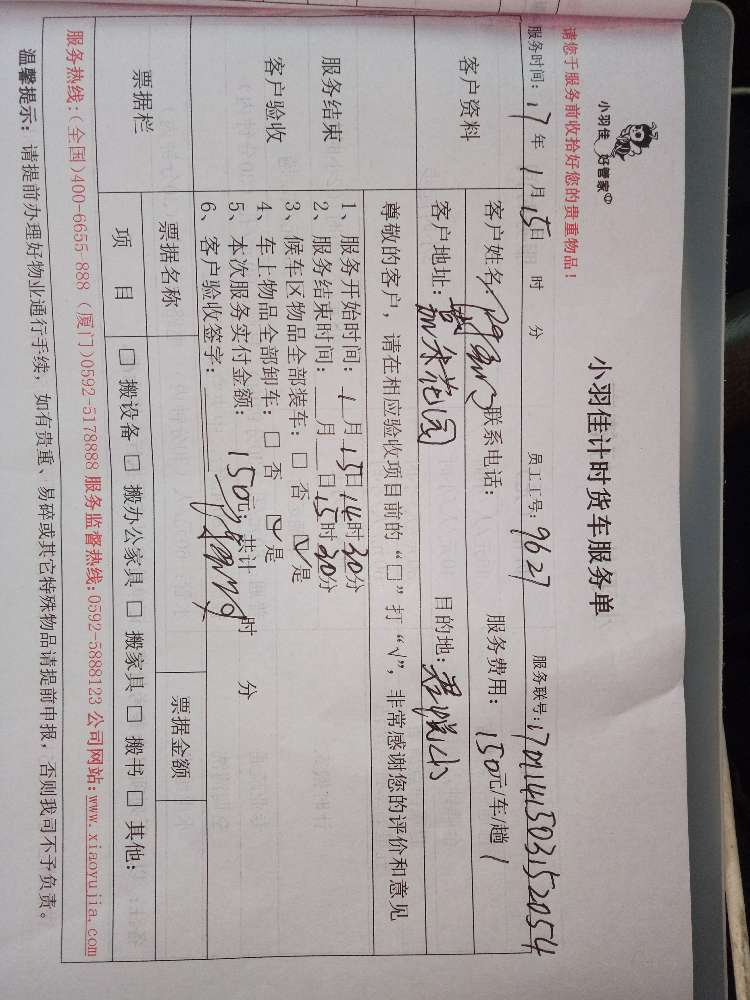 小羽佳 好管家
小羽佳计时货车服务单
请您于服务前收拾好您的贵重物品！
服务时间：17年1月15日 时 分 员工工号：9627 服务联号：
客户资料
客户姓名： 联系电话： 服务费用：150元/车/趟
客户地址： 花园 目的地：
服务结束
客户验收
尊敬的客户，请在相应验收项目前的“□”打“√”，非常感谢您的评价和意见
1、服务开始时间：1月15日14时30分
2、服务结束时间：__月__日15时30分
3、候车区物品全部装车：□ 否 ☑ 是
4、车上物品全部卸车：□ 否 ☑ 是
5、本次服务实付金额：150元，共计 时 分
6、客户验收签字：
票据栏
票据名称 票据金额
项 目 □ 搬设备 □ 搬办公家具 □ 搬家具 □ 搬书 □ 其他：
服务热线：(全国)400-6655-888 (厦门)0592-5178888 服务监督热线：0592-5888123 公司网站：www.xiaoyujia.com
温馨提示：请提前办理好物业通行手续，如有贵重、易碎或其它特殊物品请提前申报，否则我司不予负责。